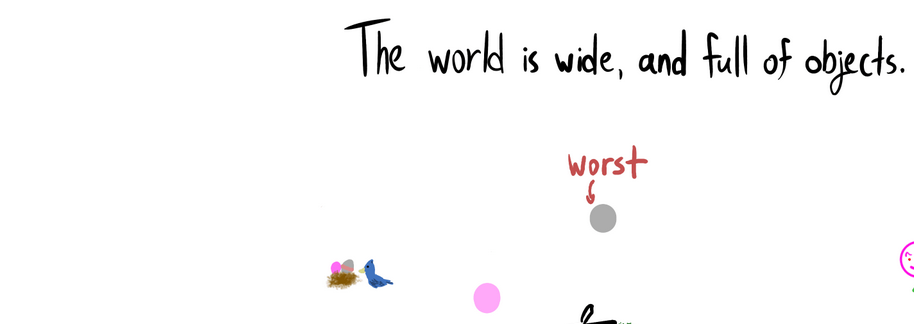 The world is wide, and full of objects.
worst